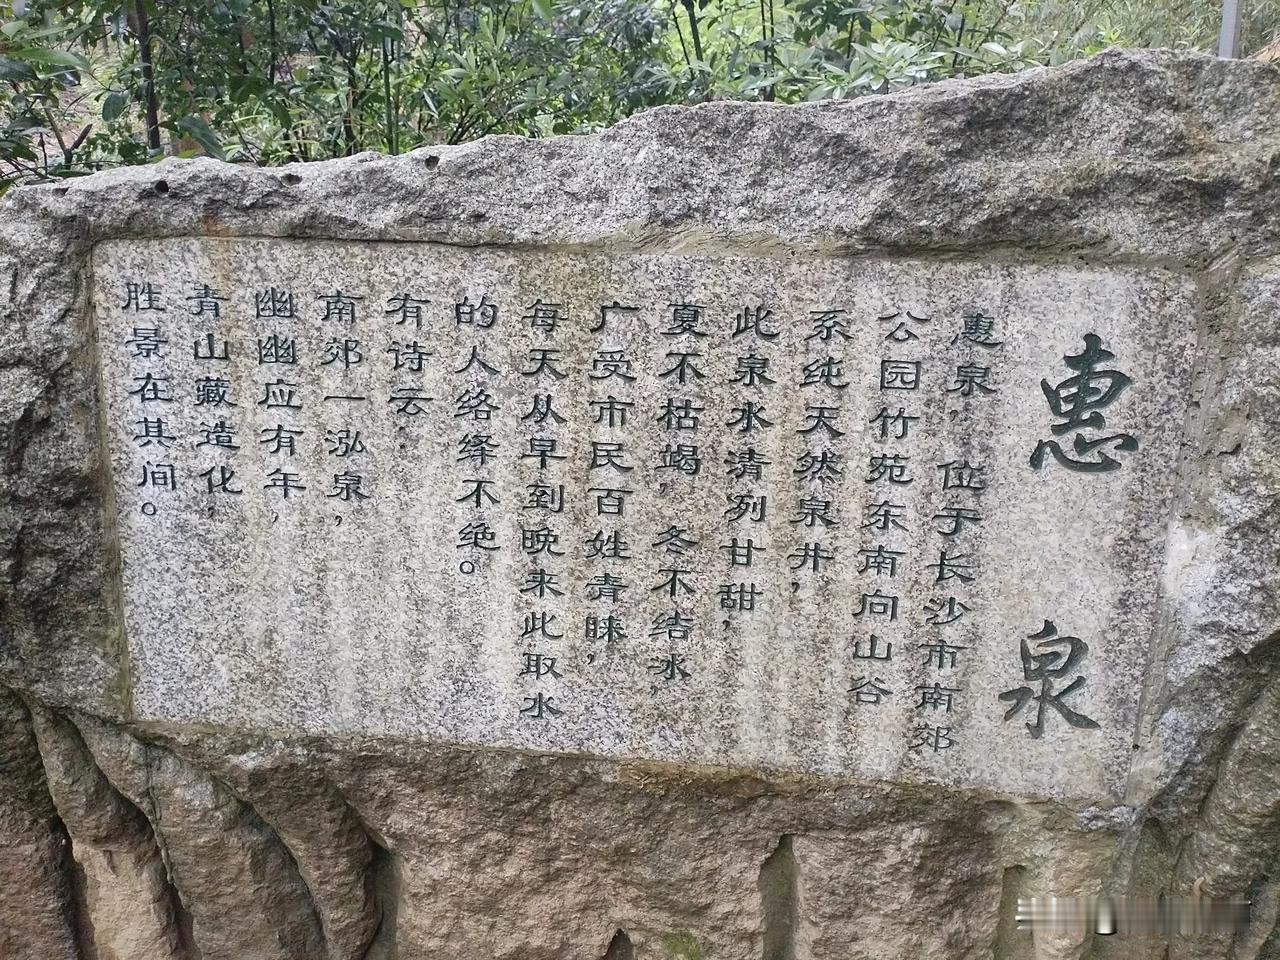 惠泉
惠泉，位于长沙市南郊
公园竹苑东南向山谷
系纯天然泉井，
此泉水清冽甘甜，
夏不枯竭，冬不结冰，
广受市民百姓青睐，
每天从早到晚来此取水
的人络绎不绝。
有诗云：
南郊一泓泉，
幽幽应有年，
青山藏造化，
胜景在其间。